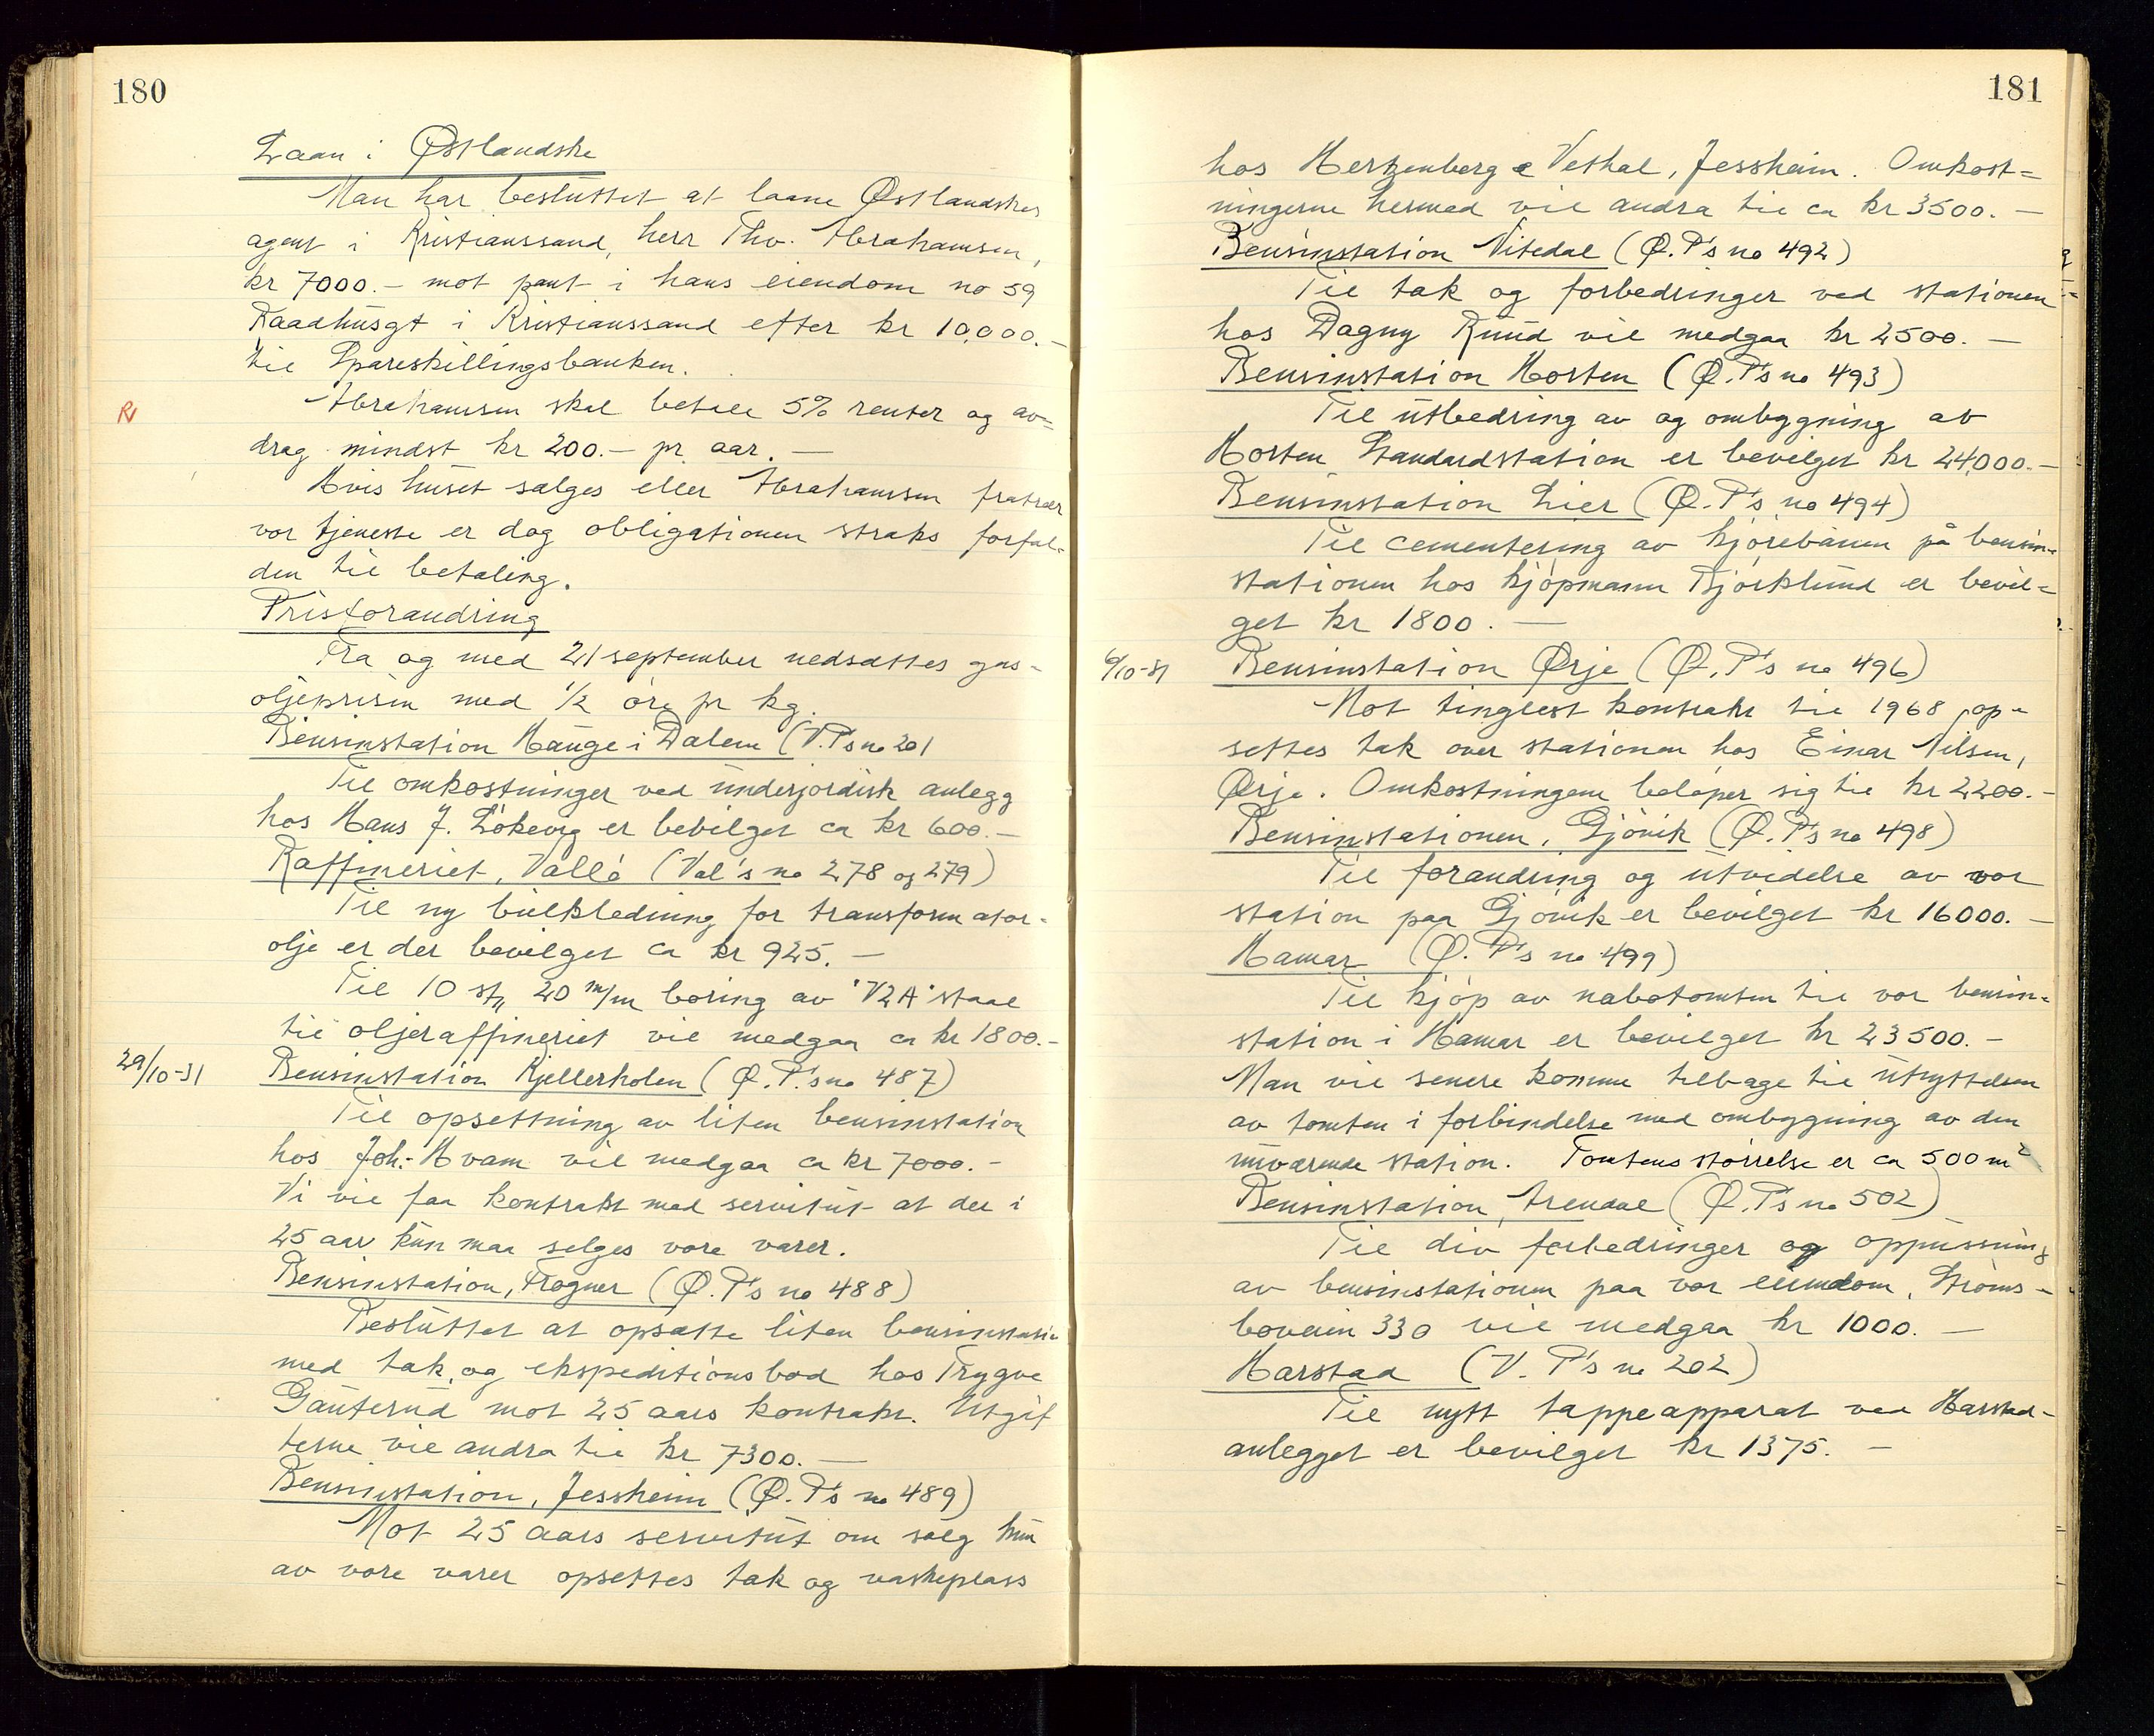 180
Laan i Østlandske
Man har besluttet at laane Østlandskes
agent i Kristianssand, herr Thv. Abrahamsen,
kr 7000.- mot pant i hans eiendom no 59
Raadhusgt i Kristianssand efter kr 10,000.-
til Spareskillingsbanken.
Abrahamsen skal betale 5% renter og av=
drag mindst kr 200.- pr. aar. —
Hvis huset sælges eller Abrahamsen fratrær
vor tjeneste er dog obligationen straks forfal-
den til betaling.
Prisforandring
Fra og med 21 september nedsættes gas-
oljeprisen med 1/2 øre pr kg.
Bensinstation Hauge i Dalene (V.P's no 201
Til omkostninger ved underjordisk anlegg
hos Hans J. Løkevig er bevilget ca kr 600.-
Raffineriet, Vallø (Val's no 278 og 279)
Til ny bulkledning for transformator-
olje er der bevilget ca kr 925. —
Til 10 st, 20 m/m boring av "V2A" staal
til oljeraffineriet vil medgaa ca kr 1800.-
29/10-31
Bensinstation Kjellerholen (Ø.P.'s no 487)
Til opsettning av liten bensinstation
hos Joh. Hvam vil medgaa ca kr 7000.-
Vi vil faa kontrakt med servitut at der i
25 aar kun maa selges vore varer.
Bensinstation, Frogner (Ø.P's no 488)
Besluttet at opsætte liten bensinstation
med tak, og ekspeditionsbod hos Trygve
Gauterud mot 25 aars kontrakt. Utgif
terne vil andra til kr 7300. —
Bensinstation, Jessheim (Ø.P's no 489)
Mot 25 aars servitut om salg kun
av vore varer opsettes tak og vaskeplass
181
hos Hertzenberg & Vethal, Jessheim. Omkost=
ningerne hermed vil andra til ca kr 3500. —
Bensinstation Nitedal (Ø.P's no 492)
Til tak og forbedringer ved stationen
hos Dagny Ruud vil medgaa kr 2500. —
Bensinstation Horten (Ø.P's no 493)
Til utbedring av og ombygning av
Horten Standardstation er bevilget kr 24,000.-
Bensinstation Lier (Ø.P's no 494)
Til cementering av kjørebanen på bensin-
stationen hos kjøpmann Bjørklund er bevil=
get kr 1800. —
6/10-31
Bensinstation Ørje (Ø.P's no 496)
Mot tinglest kontrakt til 1968 op-
settes tak over stationen hos Einar Nilsen,
Ørje. Omkostningene beløper sig til kr 2200.-
Bensinstationen, Gjøvik (Ø.P's no 498)
Til forandring og utvidelse av vor
station paa Gjøvik er bevilget kr 16000. —
Hamar (Ø.P's no 499)
Til kjøp av nabotomten til vor bensin-
station i Hamar er bevilget kr 23500. -
Man vil senere komme tilbage til utnyttelsen
av tomten i forbindelse med ombygning av den
nuværende station. Tomtens størrelse er ca 500 m²
Bensinstation, Arendal (Ø.P's no 502)
Til div forbedringer og oppussning
av bensinstationen paa vor eiendom, Strøms-
boveien 330 vil medgaa kr 1000. —
Harstad (V.P's no 202)
Til nytt tappeapparat ved Harstad-
anlegget er bevilget kr 1375. —